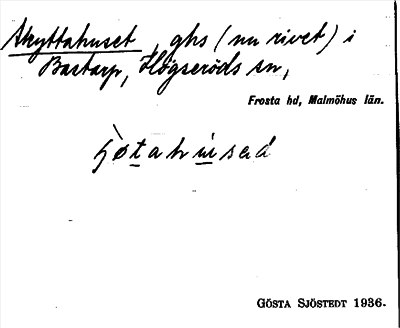 Skyttahuset, ghs (nu rivet) i
Bastarp, Högseröds sn,
Frosta hd, Malmöhus län.
GÖSTA SJÖSTEDT 1936.